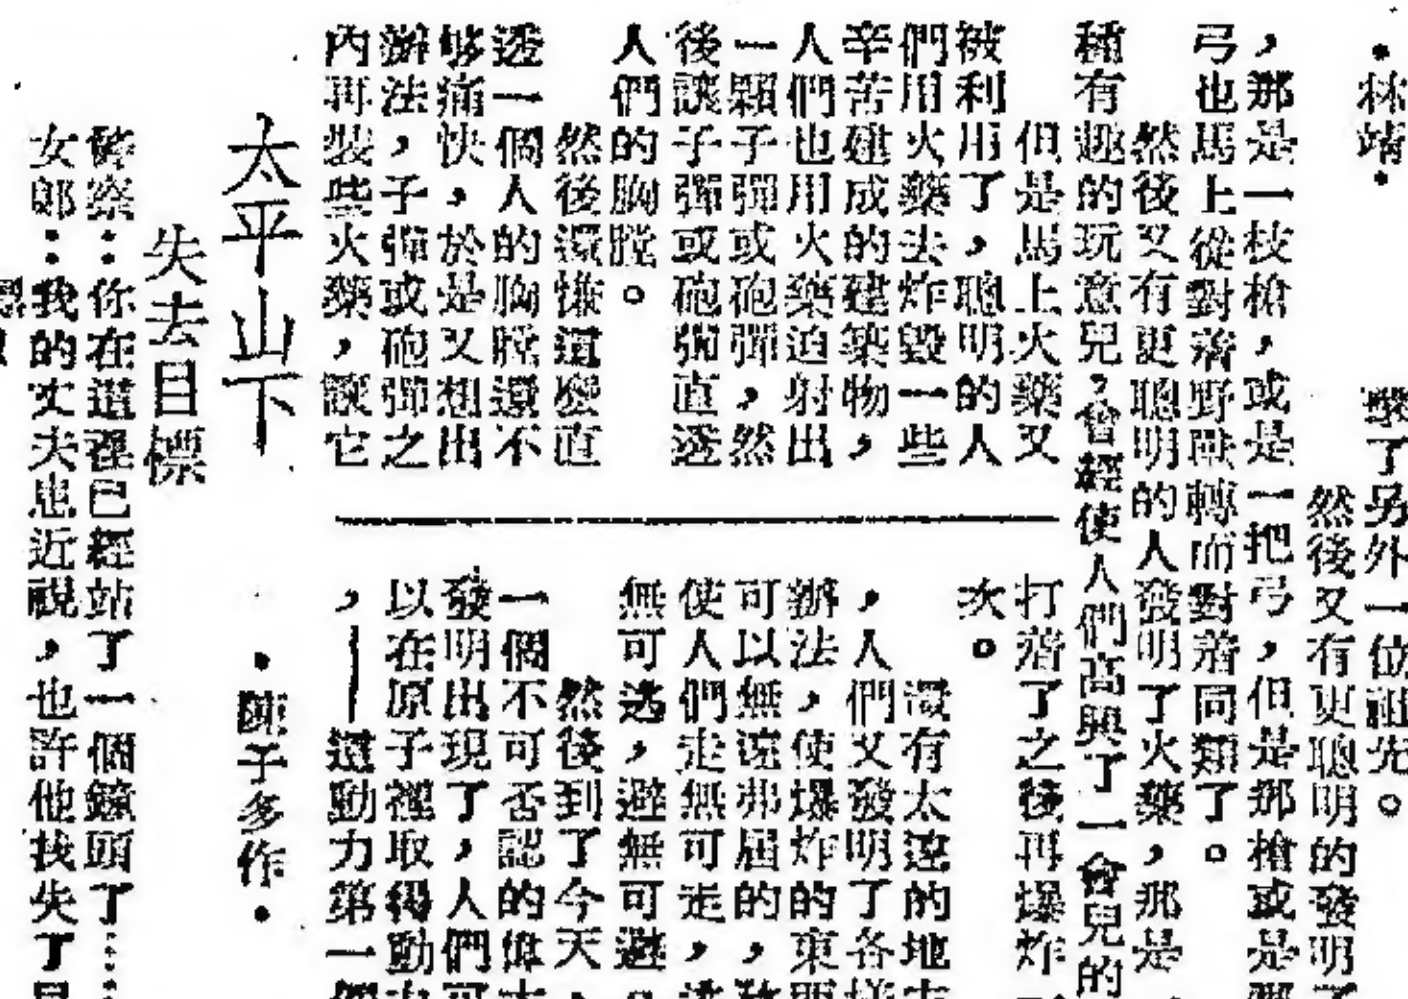 ・林靖・
擊了另外一位祖先。
然後又有更聰明的發明了
，那是一枝槍，或是一把弓，但是那槍或是那
弓也馬上從對着野獸轉而對着同類了。
然後又有更聰明的人發明了火藥，那是一
種有趣的玩意兒，會經使人們高興了一會兒的
但是馬上火藥又
被利用了，聰明的人
們用火藥去炸毀一些
辛苦建成的建築物，
人們也用火藥迫射出
一顆子彈或砲彈，然
後讓子彈或砲彈直透
人們的胸膛。
然後還嫌這麼直
透一個人的胸膛還不
够痛快，於是又想出
辦法，子彈或砲彈之
內再裝些火藥，讓它
打着了之後再爆炸
次。
沒有太遠的地
，人們又發明了各樣
辦法，使爆炸的東西
可以無遠弗屆的，
使人們走無可走，逃
無可逃，避無可避。
然後到了今天，
一個不可否認的偉大
發明出現了，人們可
以在原子裡取得動力
，——這動力第一個
太平山下
・陳子多作・
失去目標
警察：你在這裡已經站了一個鐘頭了……
女郎：我的丈夫患近視，也許他找失了目